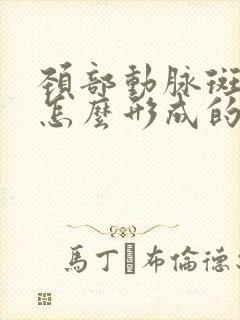 頚部動脉斑
怎麼形成的
馬丁·布倫德